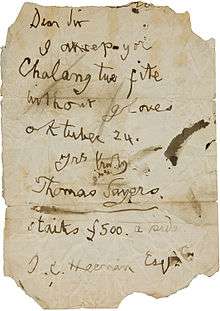 Dear Sir
I axcep yor
Chalang tue fite
without gloves
oktuber 24.
yrs
Thomas Sayers.
staiks £500. a side
J. C. Heenan Esqr.